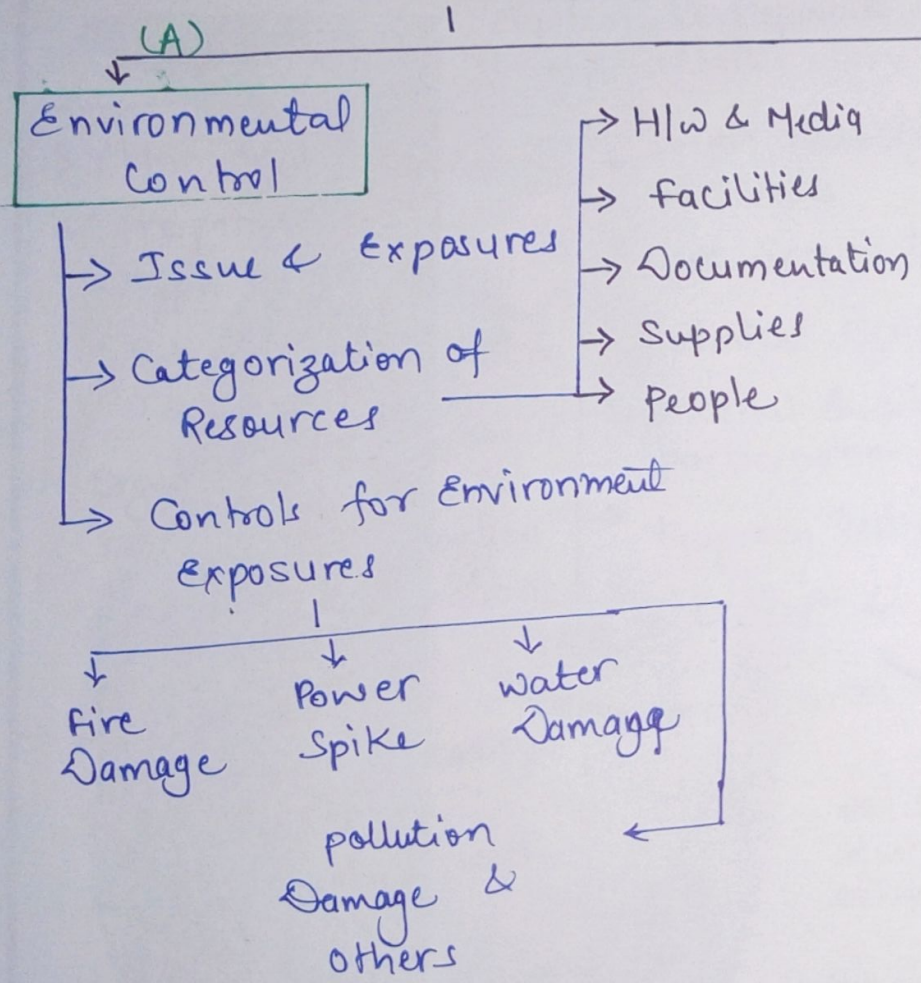 (A)
Environmental
Control
→ Issue & Exposures
→ Categorization of
Resources
→ H/W & Media
→ Facilities
→ Documentation
→ Supplies
→ People
→ Controls for Environment
Exposures
Fire
Damage
Power
Spike
Water
Damage
pollution
Damage &
others